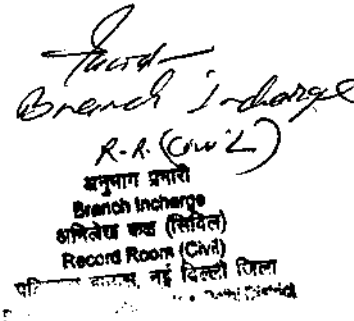 Branch Incharge
R.R. (Civil)
अनुभाग प्रभारी
Branch Incharge
अभिलेख कक्ष (सिविल)
Record Room (Civil)
नई दिल्ली जिला
Delhi District